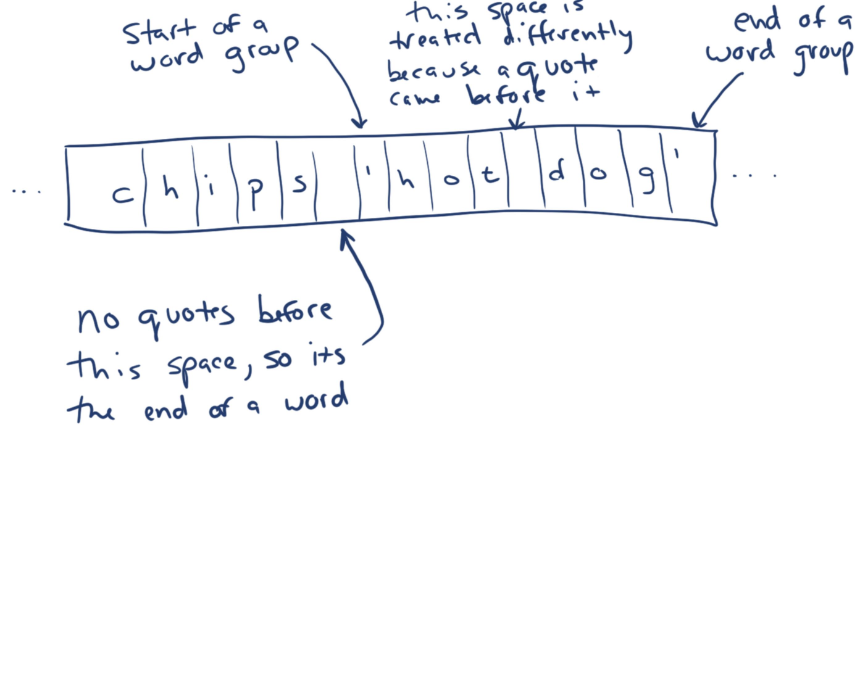 start of a
word group
this space is
treated differently
because a quote
came before it
end of a
word group
... chips 'hot dog' ....
no quotes before
this space, so its
the end of a word